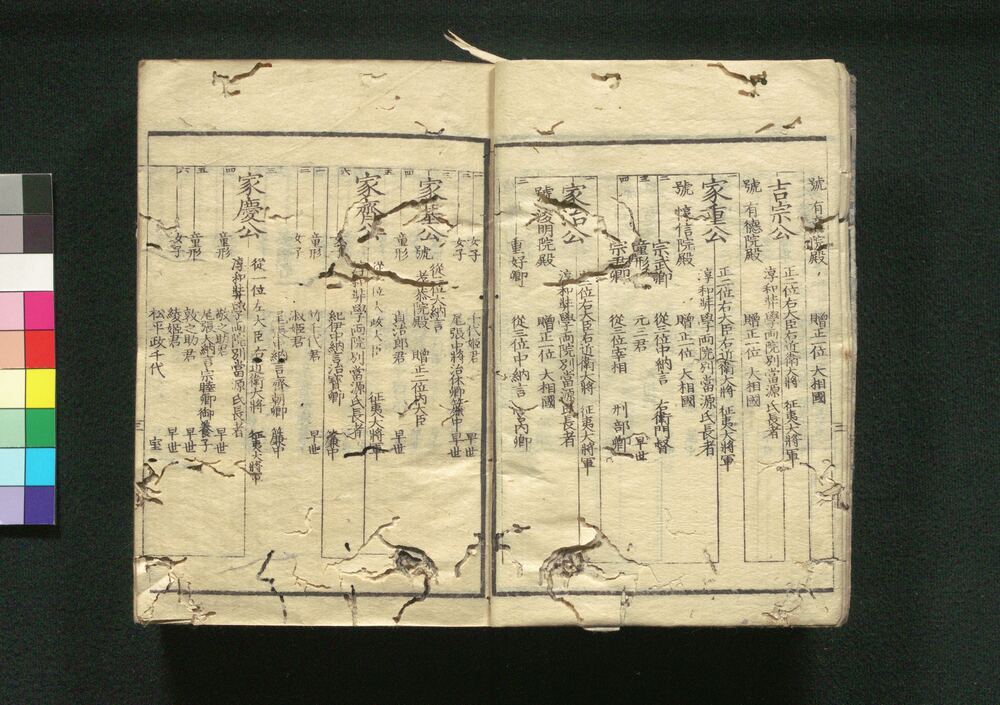 號 有 院殿 贈正一位 大相國
吉宗公 正二位右大臣右近衛大將 征夷大將軍
淳和弉學両院別當源氏長者
號 有德院殿 贈正一位 大相國
家重公 正二位右大臣右近衛大將 征夷大將軍
淳和弉學両院別當源氏長者
號 惇信院殿 贈正一位 大相國
二 宗武卿 從三位中納言 右衛門督
三 童形 元三君 早世
四 宗尹卿 從三位宰相 刑部卿
家治公 正二位右大臣右近衛大將 征夷大將軍
淳和弉學両院別當源氏長者
號 浚明院殿 贈正一位 大相國
二 重好卿 從三位中納言 宮内卿
女子 千代姫君 早世
女子 尾張中將治休卿簾中 早世
家基公 從二位大納言
號 孝恭院殿 贈正一位内大臣
四 童形 貞治郎君 早世
家齊公 從一位太政大臣 征夷大將軍
淳和弉學両院別當源氏長者
女子 紀伊中納言治寶卿 簾中
二 童形 竹千代君 早世
女子 淑姫君
尾張中納言齊朝卿 簾中
家慶公 從一位左大臣右近衛大將 征夷大將軍
淳和弉學両院別當源氏長者
四 童形 敬之助君 早世
尾張大納言宗睦卿御養子
五 童形 敦之助君 早世
六 女子 綾姫君 早世
松平政千代 室